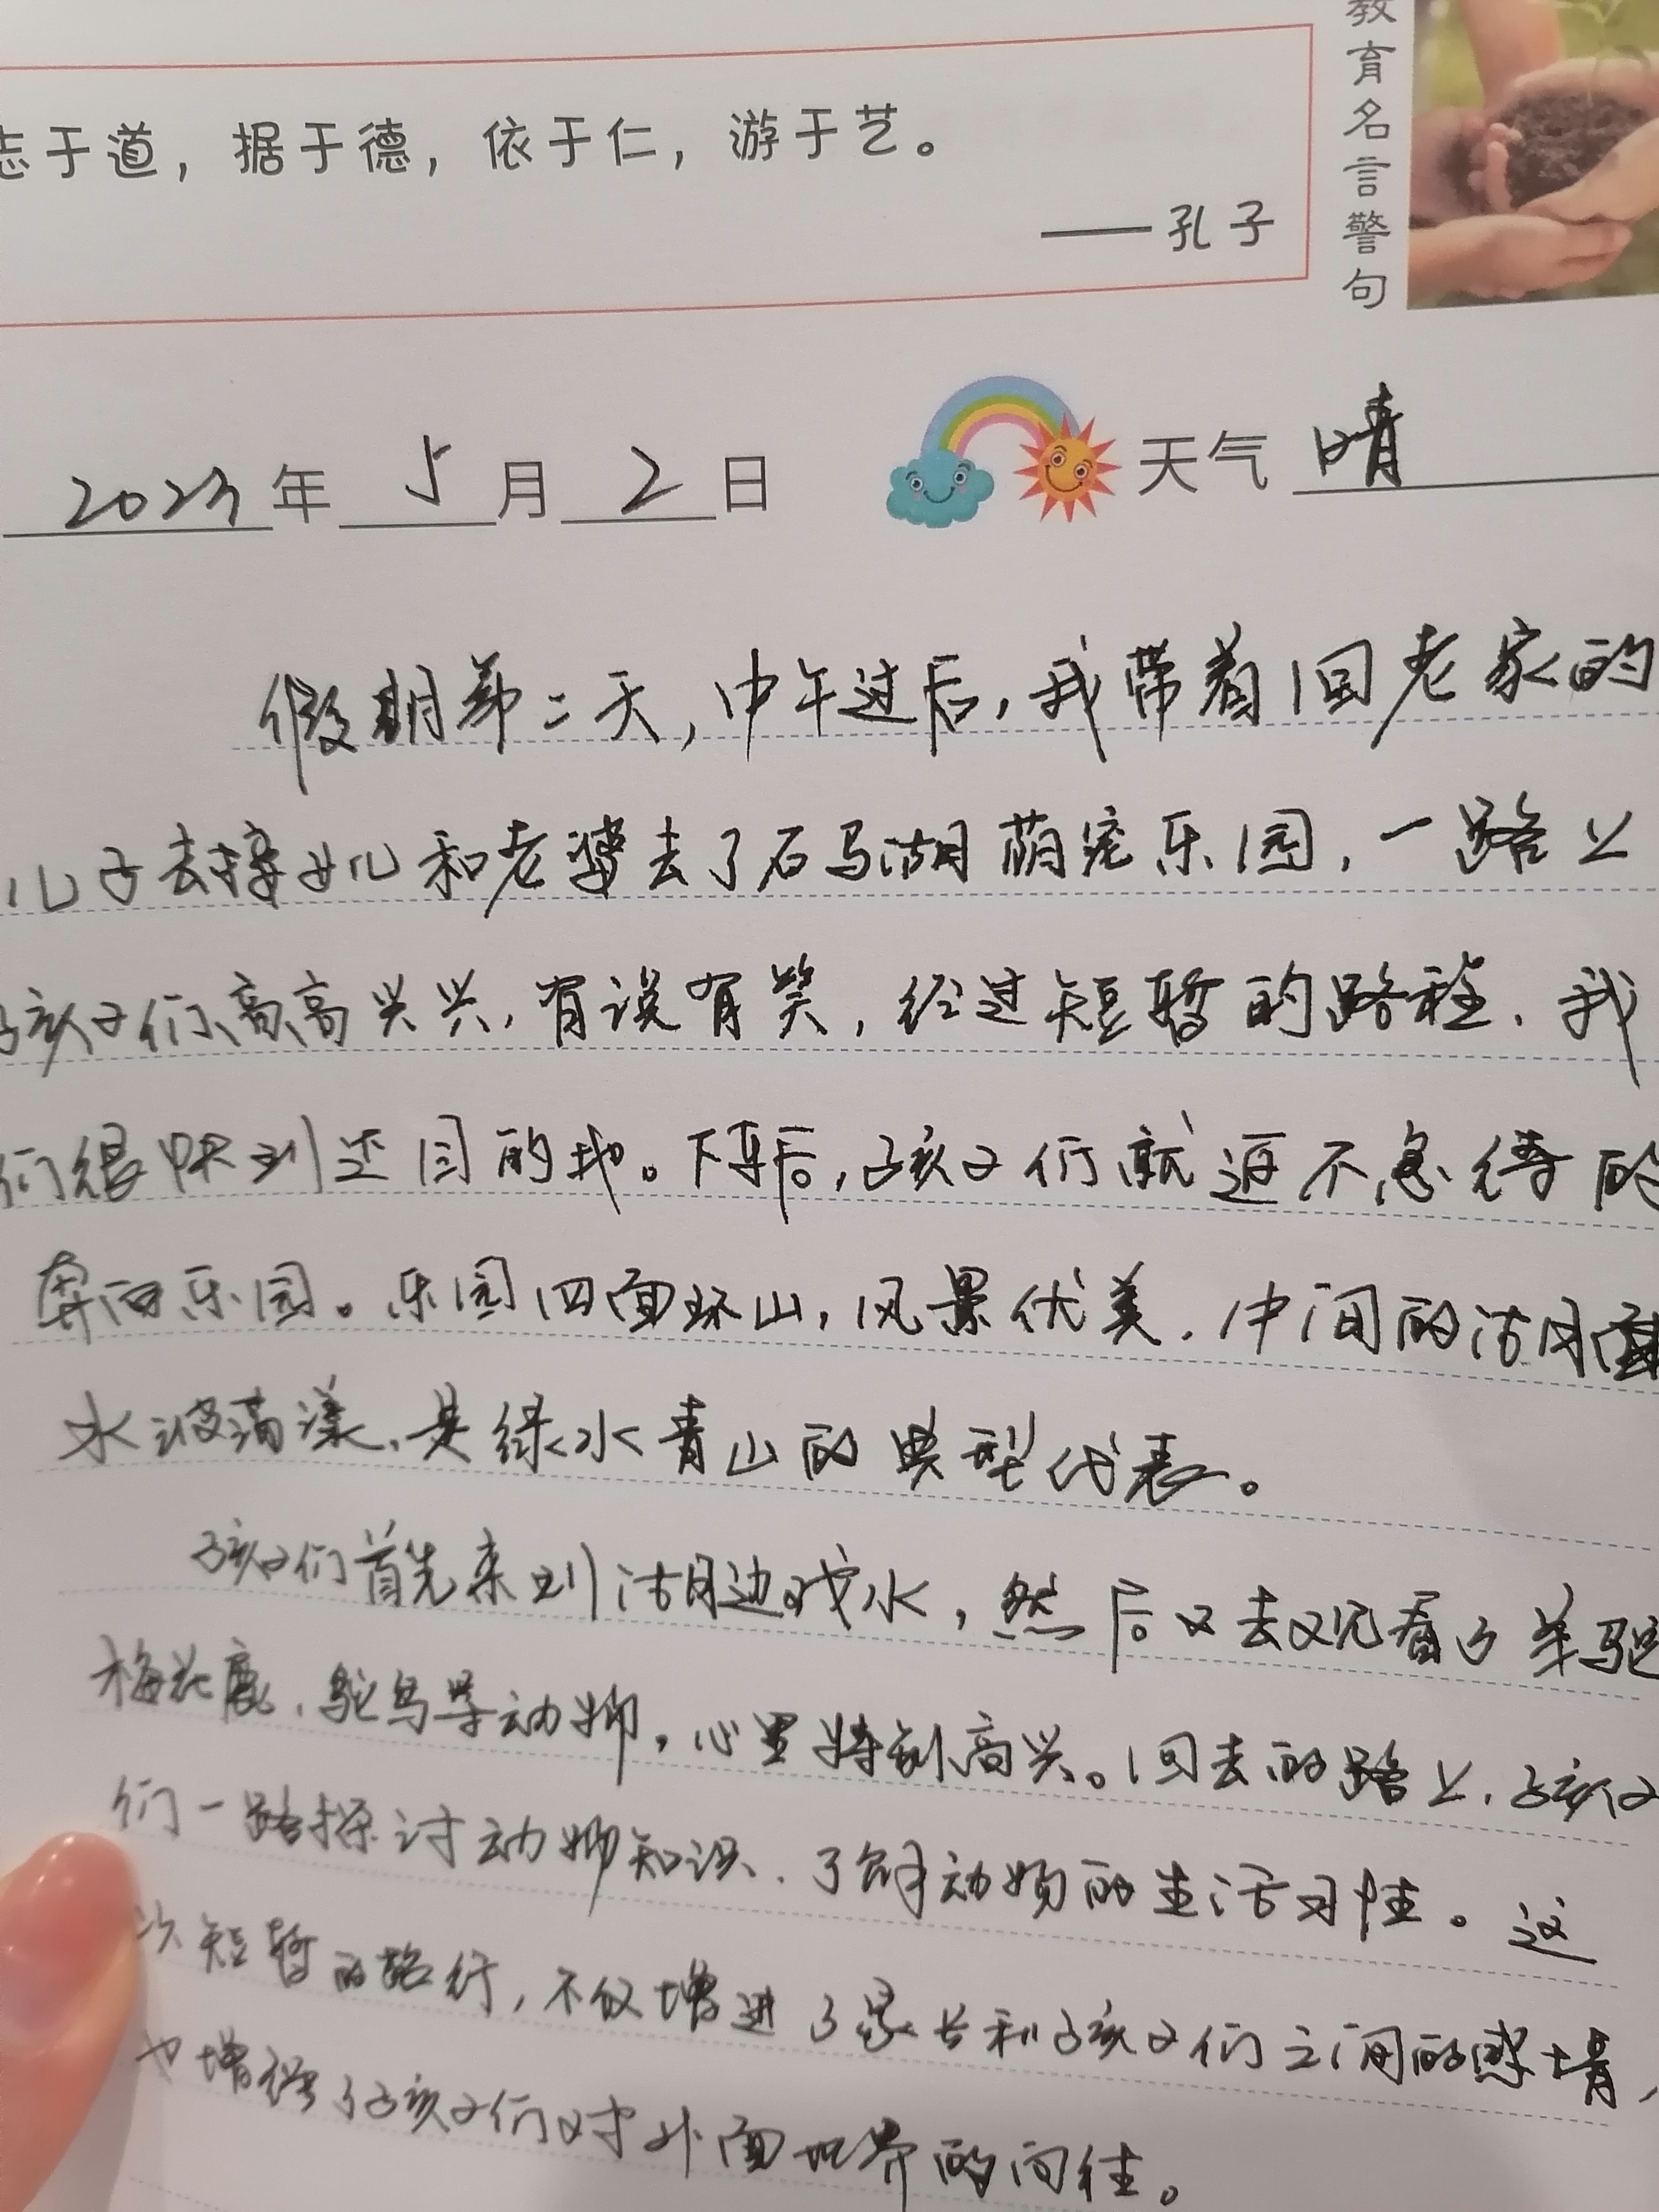 教育名言警句
志于道，据于德，依于仁，游于艺。
——孔子
2023年5月2日 天气 晴
假期第二天，中午过后，我带着回老家的
儿子去接女儿和老婆去了石马湖萌宠乐园，一路上
孩子们高高兴兴，有说有笑，经过短暂的路程，我
们很快到达目的地。下车后，孩子们就迫不急待的
奔向乐园。乐园四面环山，风景优美，中间的湖面
水波荡漾，是绿水青山的典型代表。
孩子们首先来到湖边戏水，然后又去观看了羊驼
梅花鹿，鸵鸟等动物，心里特别高兴。回去的路上，孩子
们一路探讨动物知识，了解动物的生活习性。这
次短暂的旅行，不仅增进了家长和孩子们之间的感情，
也增强了孩子们对外面世界的向往。